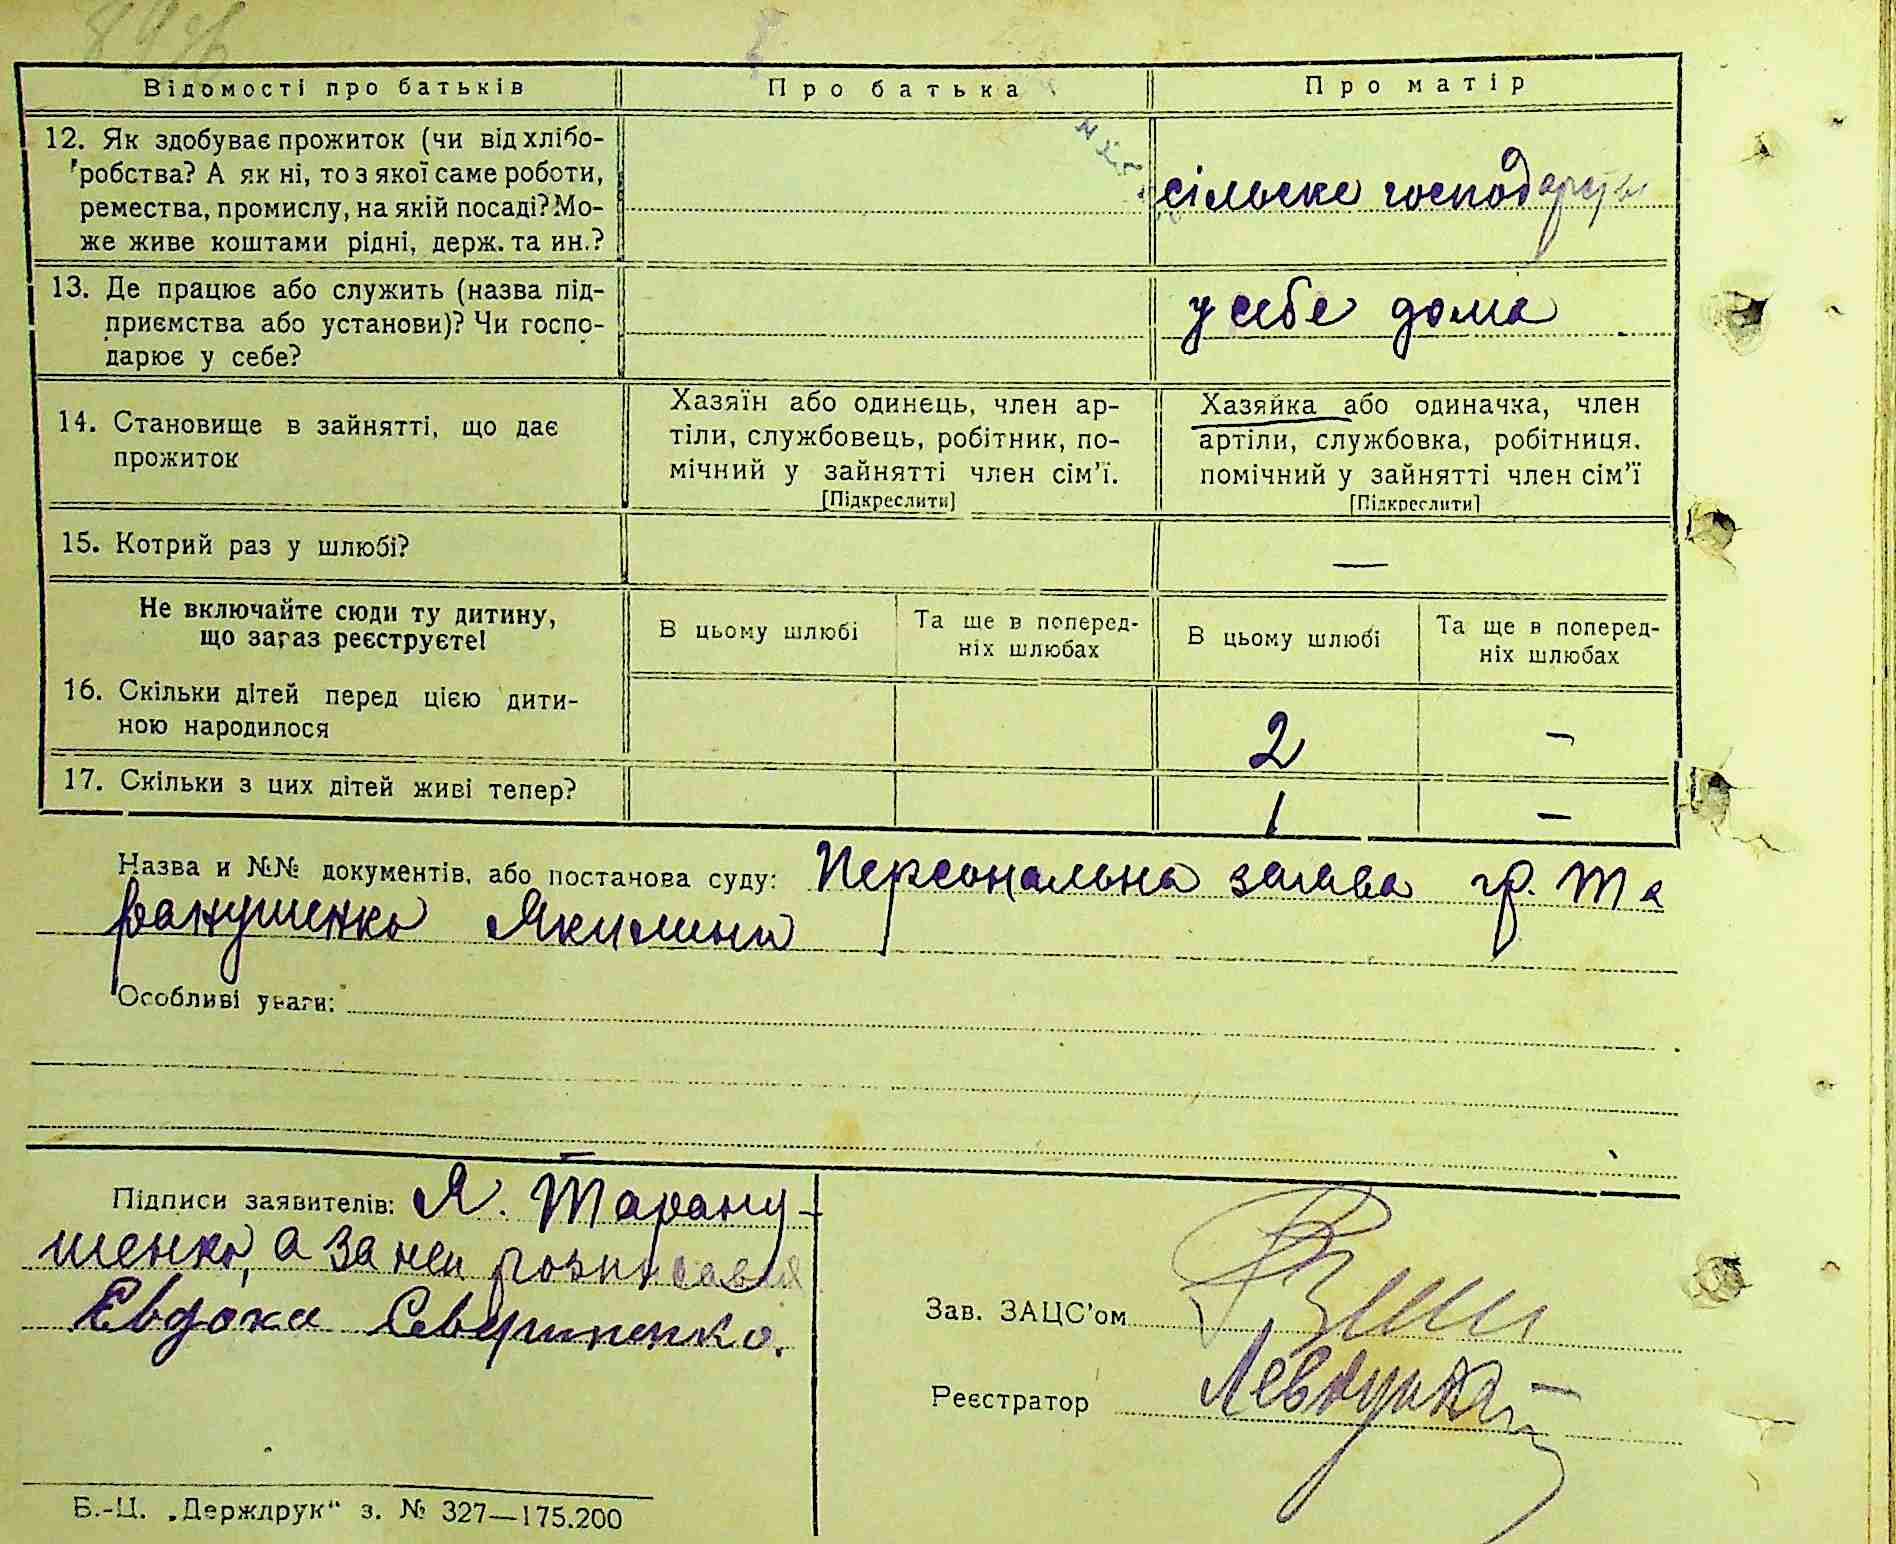 Відомості про батьків
Про батька
Про матір
12. Як здобуває прожиток (чи від хлібо-
робства? А як ні, то з якої саме роботи,
ремества, промислу, на якій посаді? Мо-
же живе коштами рідні, держ. та ин.?
сільске господарство
13. Де працює або служить (назва під-
приємства або установи)? Чи госпо-
дарює у себе?
у себе дома
14. Становище в зайнятті, що дає
прожиток
Хазяїн або одинець, член ар-
тіли, службовець, робітник, по-
мічний у зайнятті член сім'ї.
[Підкреслити]
Хазяйка або одиначка, член
артіли, службовка, робітниця.
помічний у зайнятті член сім'ї
[Підкреслити]
15. Котрий раз у шлюбі?
—
Не включайте сюди ту дитину,
що зараз реєструєте!
В цьому шлюбі
Та ще в поперед-
ніх шлюбах
В цьому шлюбі
Та ще в поперед-
ніх шлюбах
16. Скільки дітей перед цією дити-
ною народилося
2
-
17. Скільки з цих дітей живі тепер?
1
-
Назва и №№ документів, або постанова суду: Персональна заява гр. Та
ранушенко Якилини
Особливі уваги:
Підписи заявителів: Я. Тарану-
шенко, а за неи розписався
Євдоха
Зав. ЗАЦС'ом
Реєстратор
Б.-Ц. „Держдрук“ з. № 327—175.200